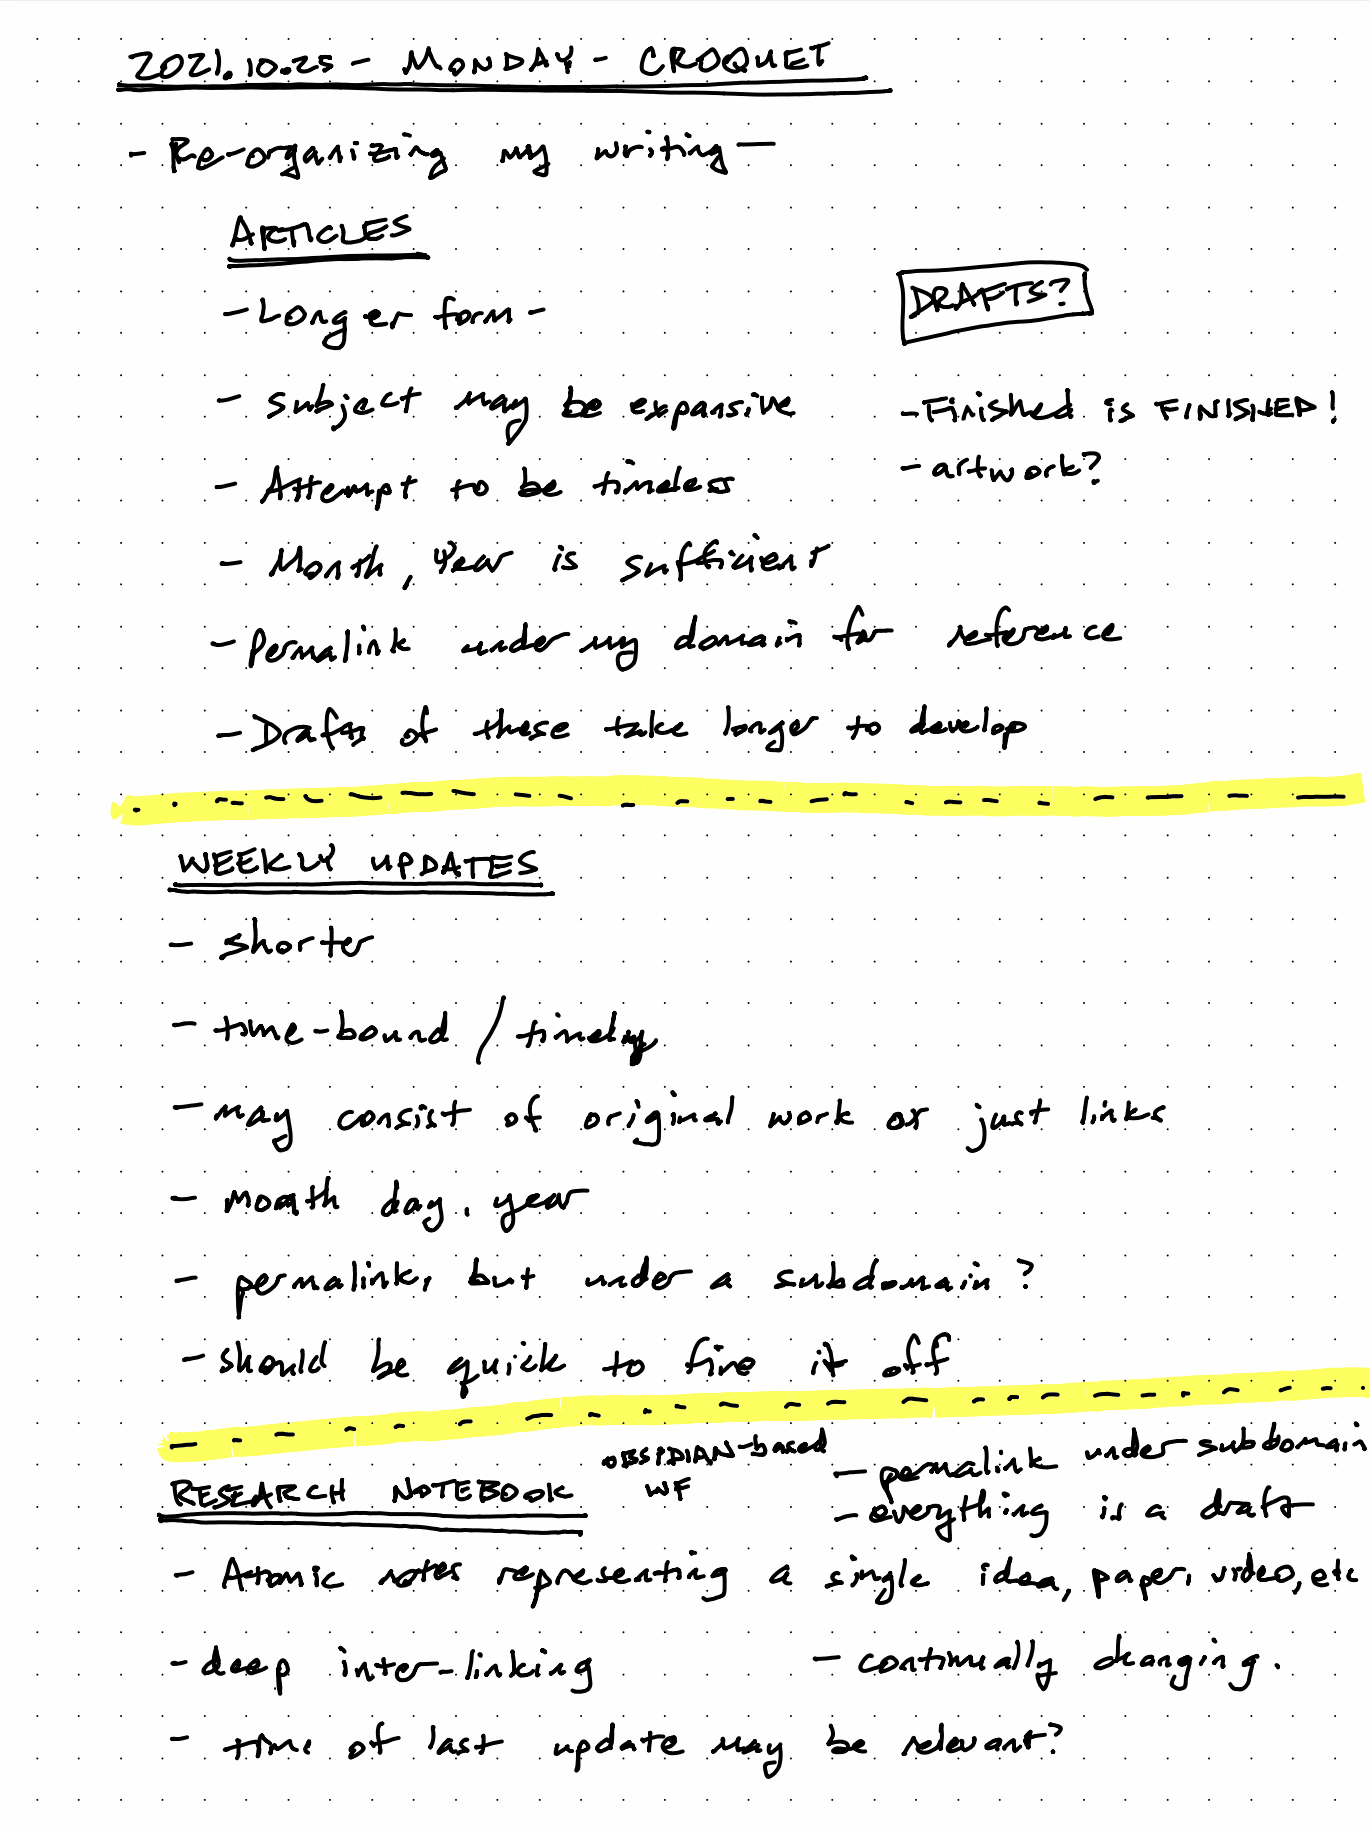 2021.10.25 - MONDAY - CROQUET
- Re-organizing my writing —
ARTICLES
- Longer form -
DRAFTS?
- subject may be expansive
- Finished is FINISHED!
- Attempt to be timeless
- artwork?
- Month, Year is sufficient
- Permalink under my domain for reference
- Drafts of these take longer to develop
WEEKLY UPDATES
- shorter
- time-bound / timely
- may consist of original work or just links
- month day, year
- permalink, but under a subdomain?
- should be quick to fire it off
RESEARCH NOTEBOOK
OBSIDIAN-based
WF
- permalink under subdomain
- everything is a draft
- Atomic notes representing a single idea, paper, video, etc
- deep inter-linking
- continually changing.
- time of last update may be relevant?